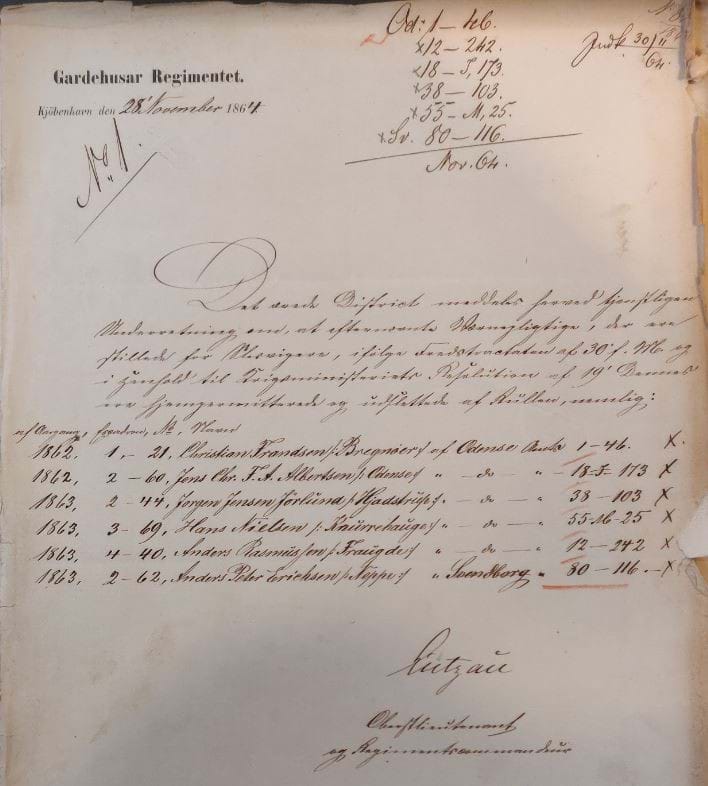 Od: 1 — 46.
x12 — 242.
x18 — J, 173.
x38 — 103.
x55 — M, 25.
x Sv. 80 — 116.
Nov. 64.
Indk 30/11 64.
Gardehusar Regimentet.
Kjöbenhavn den 28' November 1864
No. 1.
Det ærede District meddeles herved tjenstligen
Underretning om, at efternævnte Værnepligtige, der ere
stillede for Slesvigere, ifølge Fredstractaten af 30' f. M. og
i Henhold til Krigsministeriets Resolution af 19' Dennes
ere hjempermitterede og udslettede af Rullen, nemlig:
af Aargang, Escadron, No., Navn
1862. 1, – 21, Christian Frandsen /: Bregnør :/ af Odense Amts 1–46. x.
1862, 2 – 60, Jens Chr. F. A. Albertsen /: Odense :/ " — do — " 18–J– 173 x
1863, 2 – 44, Jørgen Jensen Jørlund /: Hjadstrup :/ " — do — " 38 – 103 x
1863, 3 – 69, Hans Nielsen /: Knurrehauge :/ " — do — " 55–M–25 x
1863, 4 – 40, Anders Rasmussen /: Fraugde :/ " — do — " 12 – 242 x
1863, 2 – 62, Anders Peter Erichsen /: Neppe :/ " Svendborg " 80 – 116. – x
Lützau
Oberstlieutenant
og Regimentscommandeur